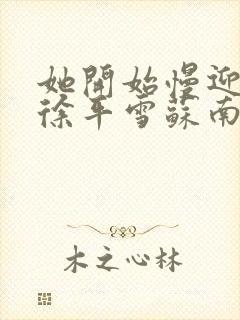 她開始慢迎
徐年雪蘇南
木之心林